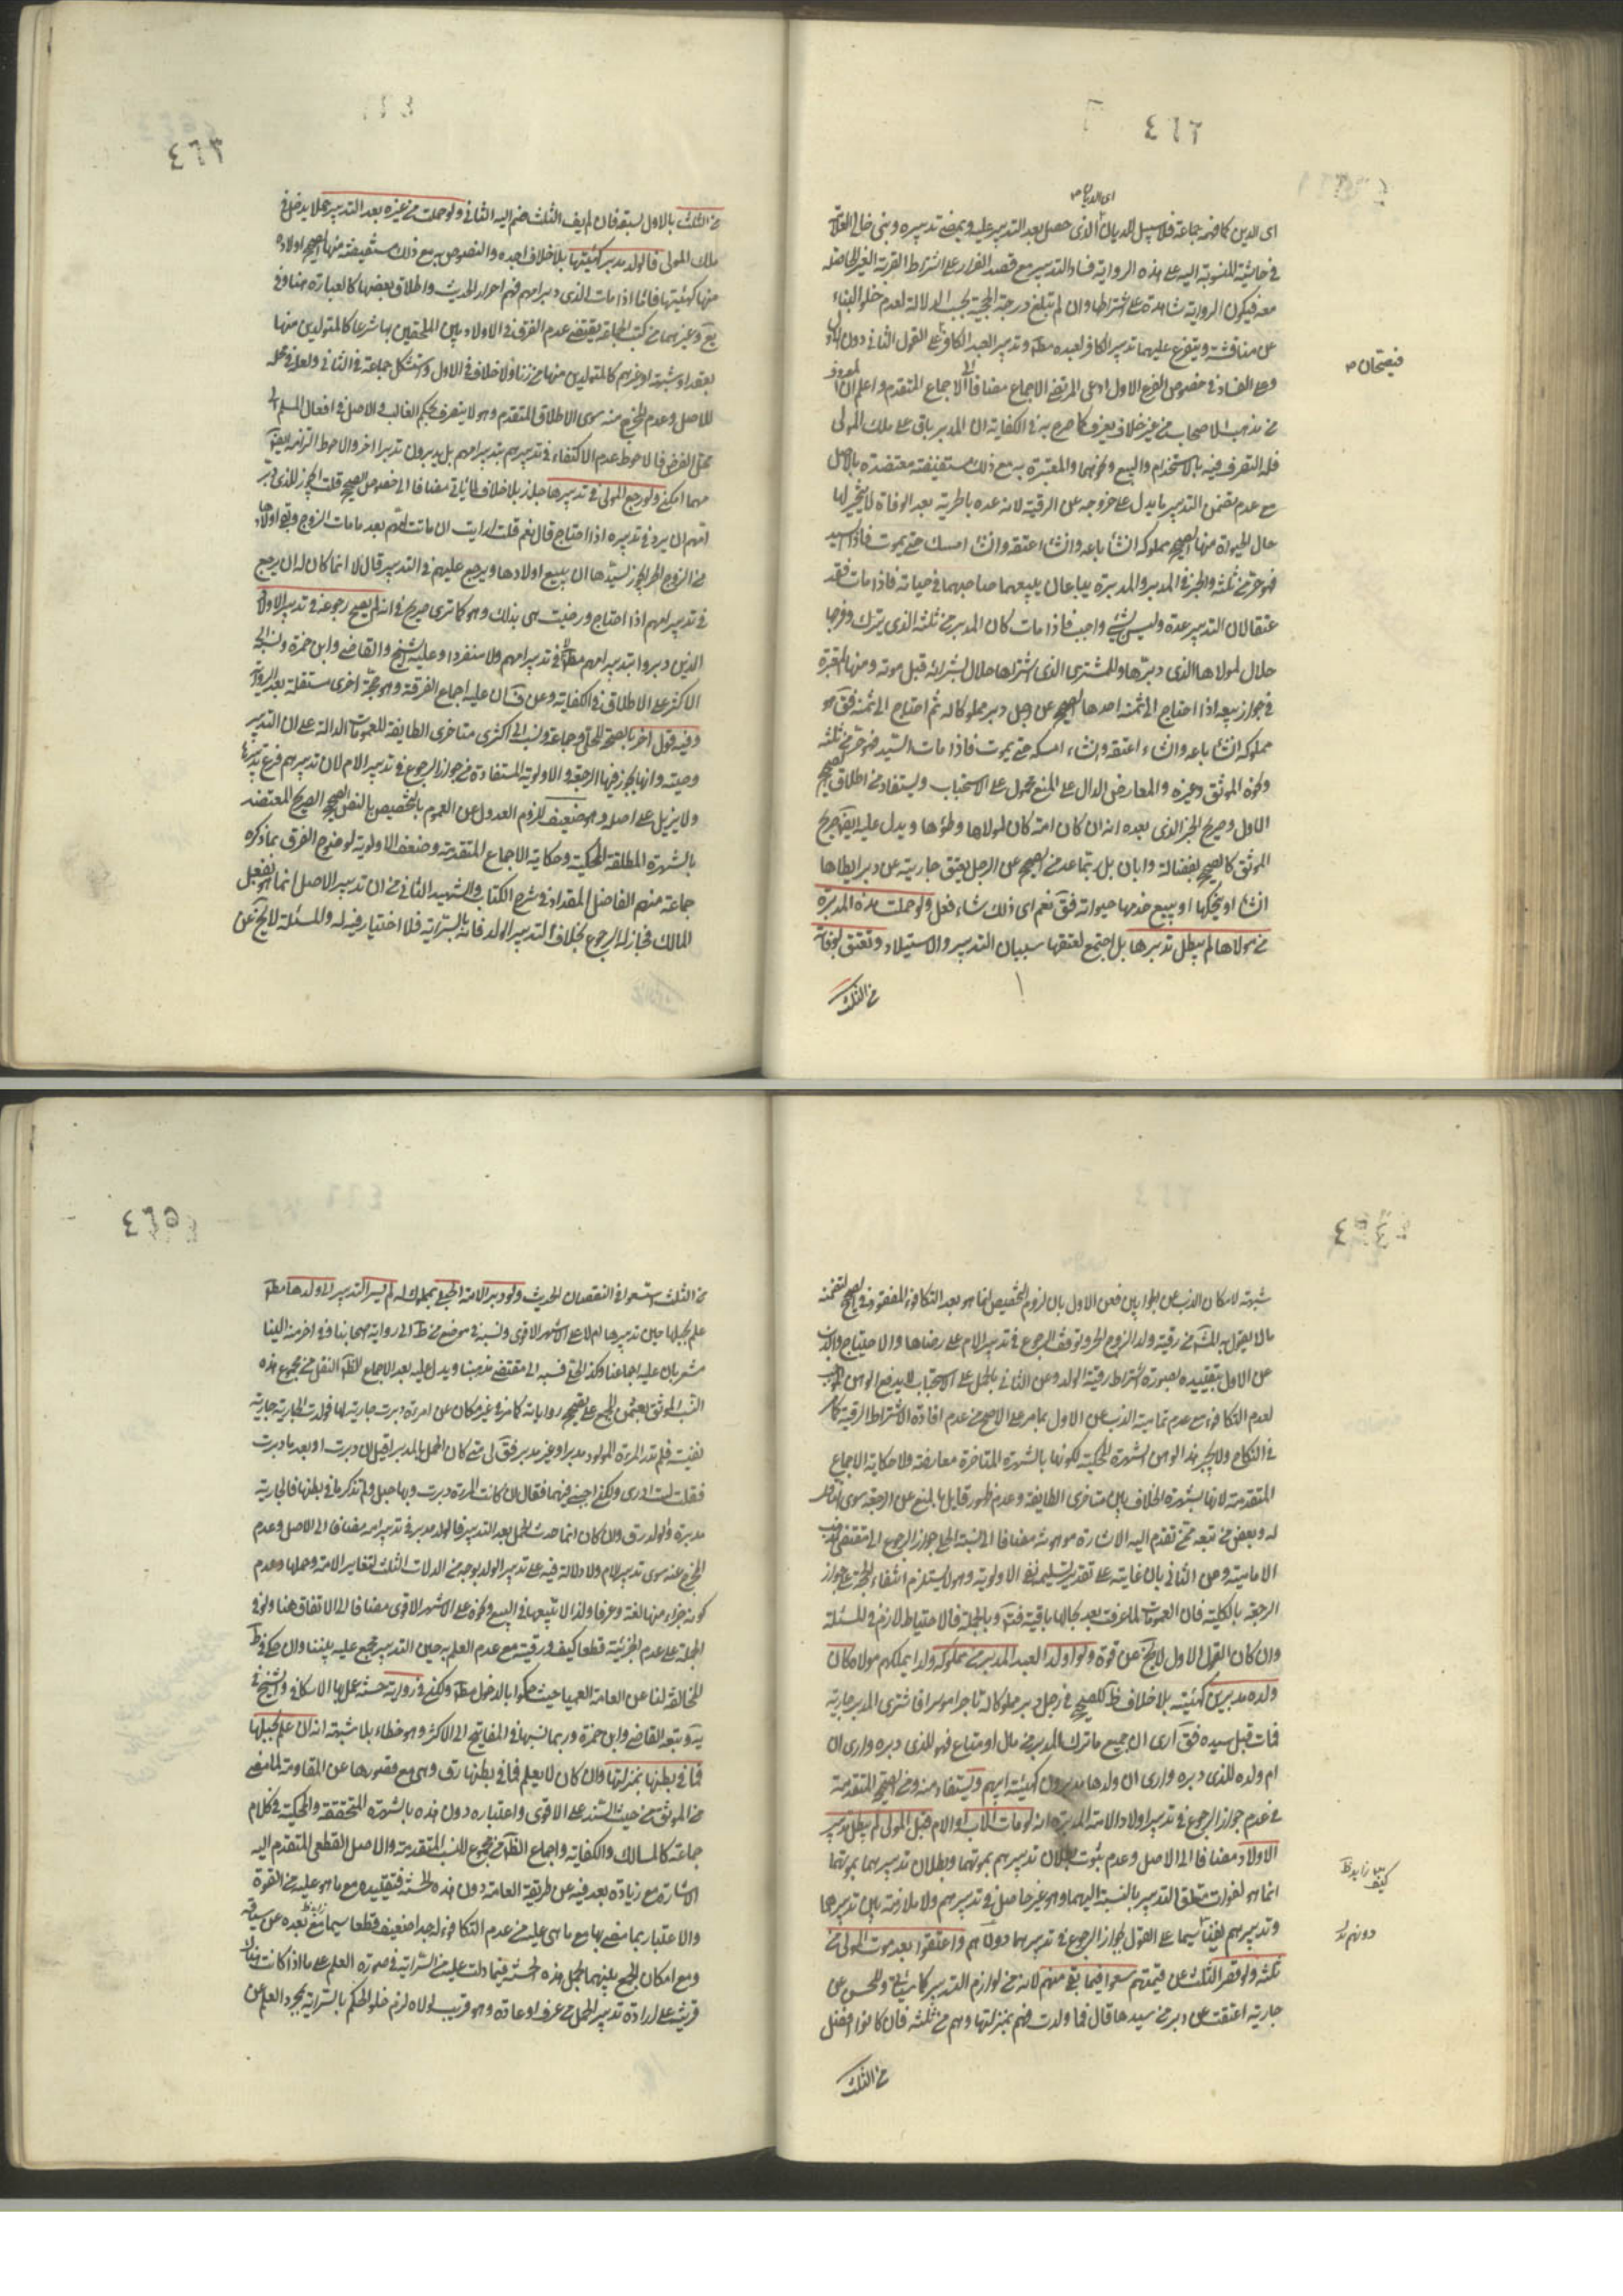 ٤٦٢
اى الديان
اى الدين كما فهمه جماعة فلا سبيل للديان الذى حصل بعد التدبير عليه ويمضى تدبيره وبنى خالى العلامة
فى حاشيته المنسوبة اليه على هذه الرواية فساد التدبير مع قصد الفرار على اشتراط القربة الغير الحاصلة
معه فيكون الرواية شاهدة على اشتراطها وان لم تبلغ درجة الحجية بحسب الدلالة لعدم خلو البناء
عن مناقشة ويتفرع عليهما تدبير الكافر لعبده مطلقا وتدبير العبد الكافر على القول الثانى دون الاول
وعلى الفساد فى خصوص الفرع الاول ادعى المرتضى الاجماع مضافا الى الاجماع المتقدم واعلم ان المعروف
من مذهب الاصحاب من غير خلاف يعرف كما صرح به فى الكفاية ان المدبر باق على ملك المولى
فله التصرف فيه بالاستخدام والبيع ونحوهما والمعتبرة به مع ذلك مستفيضة معتضدة بالاصل
مع عدم تضمن التدبير ما يدل على خروجه عن الرقية لانه عده بالحرية بعد الوفاة لا تنجيز لها
حال الحيوة منها الصحيح مملوكه ان شاء باعه وان شاء اعتقه وان شاء امسك حتى يموت فاذا مات السيد
فهو حر من ثلثه والخبر فى المدبر والمدبرة يباعان يبيعهما صاحبهما فى حياته فاذا مات فقد
عتقا لان التدبير عدة وليس بشئ واجب فاذا مات كان المدبر من ثلثه الذى يترك وفرجها
حلال لمولاها الذى دبرها وللمشترى الذى اشتراها حلال بشرائه قبل موته ومنها المعتبرة
فى جواز بيعه اذا احتاج الى ثمنه احدها الصحيح عن رجل دبر مملوكا له ثم احتاج الى ثمنه فق هو
مملوكه ان شاء باعه وان شاء اعتقه وان شاء امسكه حتى يموت فاذا مات السيد فهو حر من ثلثه
ونحوه الموثق وغيره والمعارض الدال على المنع محمول على الاستحباب ويستفاد من اطلاق الصحيح
الاول وصريح الخبر الذى بعده انه ان كان امة كان لمولاها وطؤها ويدل عليه ايضا صريح
الموثق كالصحيح بفضالة وابان بل ربما عد من الصحيح عن الرجل يعتق جاريته عن دبر ايطاها
ان شاء او ينكحها او يبيع خدمتها حيوته فق نعم اى ذلك شاء فعل ولو حملت هذه المدبرة
من مولاها لم يبطل تدبيرها بل اجتمع لعتقها سببان التدبير والاستيلاد وتعتق لوفاته
من الثلث
فيصحان
٤٦٣
من الثلث بالاول لسبقه فان لم يف الثلث ضم اليه الثانى ولو حملت من غيره بعد التدبير حملا يدخل فى
ملك المولى فالولد مدبر كهيئتها بلا خلاف اجده والنصوص به مع ذلك مستفيضة منها الصحيح اولاده
منها كهيئتها فاذا مات الذى دبر امهم فهم احرار الحديث واطلاق بعضها كالعبارة هنا وفى
يع وغيرهما من كتب الجماعة يقتضى عدم الفرق فى الاولاد بين الملحقين بها شرعا كالمتولدين منها
بعقد او شبهة او غيرهم كالمتولدين منها من زنا ولا خلاف فى الاول واستشكل جماعة فى الثانى ولعله فى محله
للاصل وعدم المخرج منه سوى الاطلاق المتقدم وهو لا ينصرف بحكم الغالب والاصل فى افعال المسلم الى
محل الفرض فالاحوط عدم الاكتفاء فى تدبيرهم بتدبير امهم بل يدبرون تدبيرا اخر والاحوط التزامه ايضا
مهما امكن ولو رجع المولى فى تدبيرها جاز بلا خلاف لما ياتى مضافا الى خصوص الصحيح قلت ايجوز للذى دبر
امهم ان يرد فى تدبيره اذا احتاج قال نعم قلت ارايت ان ماتت امهم بعد ما مات الزوج وبقى اولادها
من الزوج الحر ايجوز لسيدها ان يبيع اولادها ويرجع عليهم فى التدبير قال لا انما كان له ان يرجع
فى تدبير امهم اذا احتاج ورضيت هى بذلك وهو كما ترى صريح فى انه لم يصح رجوعه فى تدبير الاولاد
الذين دبروا بتدبير امهم مطلقا فى تدبير امهم ولا منفردا وعليه الشيخ والقاضى وابن حمزة ونسبه الى
الاكثر على الاطلاق فى الكفاية وعن ف ان عليه اجماع الفرقة وهو حجة اخرى مستقلة بعد الرواية
وفيه قول اخر بالصحة للحلى وجماعة ونسب الى اكثر متاخرى الطايفة للعمومات الدالة على ان التدبير
وصية وانها يجوز فيها الرجعة والاولوية المستفادة من جواز الرجوع فى تدبير الام لان تدبيرهم فرع تدبيرها
ولا يزيل على اصله وهو ضعيف للزوم العدول عن العموم بالتخصيص بالنص الصحيح الصريح المعتضد
بالشهرة المطلقة المحكية وحكاية الاجماع المتقدمة وضعف الاولوية لوضوح الفرق بما ذكره
جماعة منهم الفاضل المقداد فى شرح الكتاب والشهيد الثانى من ان تدبير الاصل انما هو بفعل
المالك فجاز له الرجوع بخلاف التدبير الولد فانه بالسراية فلا اختيار فيه له والمسئلة لا يخ عن
٤٦٤
شبهة لامكان الذب عن الجوابين فعن الاول بان لزوم التخصيص انما هو بعد التكافؤ المفقود فى الصحيح لتضمنه
ما لا يقول به المشهور من رقية ولد الزوج الحر وتوقف الرجوع فى تدبير الام على رضاها والاحتياج والذب
عن الاول بتقييده بصورة اشتراط رقية الولد وعن الثانى بالحمل على الاستحباب لا يدفع الوهن الموجب
لعدم التكافؤ مع عدم تمامية الذب عن الاول بما مر على الاصح من عدم افادة الاشتراط الرقية كما مر
فى النكاح ولا يجبر هذا الوهن الشهرة المحكية لكونها بالشهرة المتاخرة معارضة ولا حكاية الاجماع
المتقدمة لانها بشهرة الخلاف بين متاخرى الطايفة وعدم ظهور قايل بالمنع عن الرجعة سوى الناقل
له وبعض من تبعه ممن تقدم اليه الاشارة موهونة مضافا الى نسبة الحلى جواز الرجوع الى مقتضى مذهب
الامامية وعن الثانى بان غايته على تقدير تسليمه نفى الاولوية وهو لا يستلزم انتفاء الحجة على جواز
الرجعة بالكلية فان العمومات لما عرفت بعد بحالها باقية فت وبالجملة فالاحتياط لازم فى المسئلة
وان كان القول الاول لا يخ عن قوة ولو اولد العبد المدبر من مملوكة ولدا يملكهم مولاه كان
ولده مدبرين كهيئته بلا خلاف ظ للصحيح فى رجل دبر مملوكا له تاجرا موسرا فاشترى المدبر جارية
فمات قبل سيده فق ارى ان جميع ما ترك المدبر من مال او متاع فهو للذى دبره وارى ان
ام ولده للذى دبره وارى ان ولدها مدبرون كهيئة ابيهم ويستفاد منه ومن الصحيح المتقدمة
فى عدم جواز الرجوع فى تدبير اولاد الامة المدبرة انه لو مات الاب او الام قبل المولى لم يبطل تدبير
الاولاد مضافا الى الاصل وعدم ثبوت بطلان تدبيرهم بموتهما وبطلان تدبيرهما بموتهما
انما هو لفوات متعلق التدبير بالنسبة اليهما وهو غير حاصل فى تدبيرهم ولا ملازمة بين تدبيرهما
وتدبيرهم يقينا سيما على القول بجواز الرجوع فى تدبيرهما دونهم واعتقوا بعد موت المولى من
ثلثه ولو قصر الثلث عن قيمتهم سعوا فيما بقى منهم لانه من لوازم التدبير كما سياتى وللحسن عن
جارية اعتقت عن دبر من سيدها قال فما ولدت فهم بمنزلتها وهم من ثلثه فان كانوا افضل
من الثلث
دونهم
٤٦٥
من الثلث استسعوا فى النقصان الحديث ولو دبر الامة الحبلى بمملوك له لم يسر التدبير الى ولدها مطلقا
علم بحبلها حين تدبيرها ام لا على الاشهر الاقوى ونسبه فى موضع من ط الى رواية صحابنا وفى اخر منه الينا
مشعر بان عليه اجماعنا وكذ الحلى فنسبه الى مقتضى مذهبنا ويدل عليه بعد الاجماع الظاهر النقل من مجموع هذه
النسب الموثق بعثمن المجمع على تصحيح رواياته كما مر فى غير مكان عن امرءة دبرت جارية لها فولدت الجارية جارية
نفيسة فلم تدر المرءة المولود مدبر او غير مدبر فق لى متى كان الحمل بالمدبر اقبل ان دبرت او بعد ما دبرت
فقلت لست ادرى ولكن اجبنى فيهما فقال ان كانت المرءة دبرت وبها حبل ولم تذكر ما فى بطنها فالجارية
مدبرة والولد رق وان كان انما حدث الحمل بعد التدبير فالولد مدبر فى تدبير امه مضافا الى الاصل وعدم
المخرج عنه سوى تدبير الام ولا دلالة فيه على تدبير الولد بوجه من الدلالات الثلث لتغاير الامة وحملها وعدم
كونه جزاء منها لغة وعرفا ولذا لا يتبعها فى البيع ونحوه على الاشهر الاقوى مضافا الى الاتفاق هنا ولو فى
الجملة على عدم الجزئية قطعا كيف ورقيته مع عدم العلم به حين التدبير مجمع عليه بيننا وان حكى فى ظ
المخالفة لنا عن العامة العمياء حيث حكموا بالدخول مطلقا ولكن فى رواية حسنة عمل بها الاسكافى والشيخ فى
ية وتبعه القاضى وابن حمزة وربما نسبها فى المفاتيح الى الاكثر وهو خطاء بلا شبهة انه ان علم بحبلها
فما فى بطنها بمنزلتها وان كان لا يعلم فما فى بطنها رق وهى مع قصورها عن المقاومة لما مضى
من الموثق من حيث السند على الاقوى واعتباره دون هذه بالشهرة المتحققة والمحكية فى كلام
جماعة كالمسالك والكفاية واجماع الظاهر من مجموع النسب المتقدمة والاصل القطعى المتقدم اليه
الاشارة مع زيادة بعد فيه عن طريقة العامة دون هذه الحسنة فتقييده مع ما هو عليه من القوة
والاعتبار بما مضى بها مع ما هى عليه من عدم التكافؤ له جدا ضعيف قطعا سيما مع بعده عن سياقه
ومع امكان الجمع بينهما بحمل هذه الحسنة فيما دلت عليه من السراية فى صورة العلم على ما اذا كانت هناك
قرينة على ارادة تدبير الحمل من عرف او عادة وهو قريب لولاه لزم خلو الحكم بالسراية بمجرد العلم عن